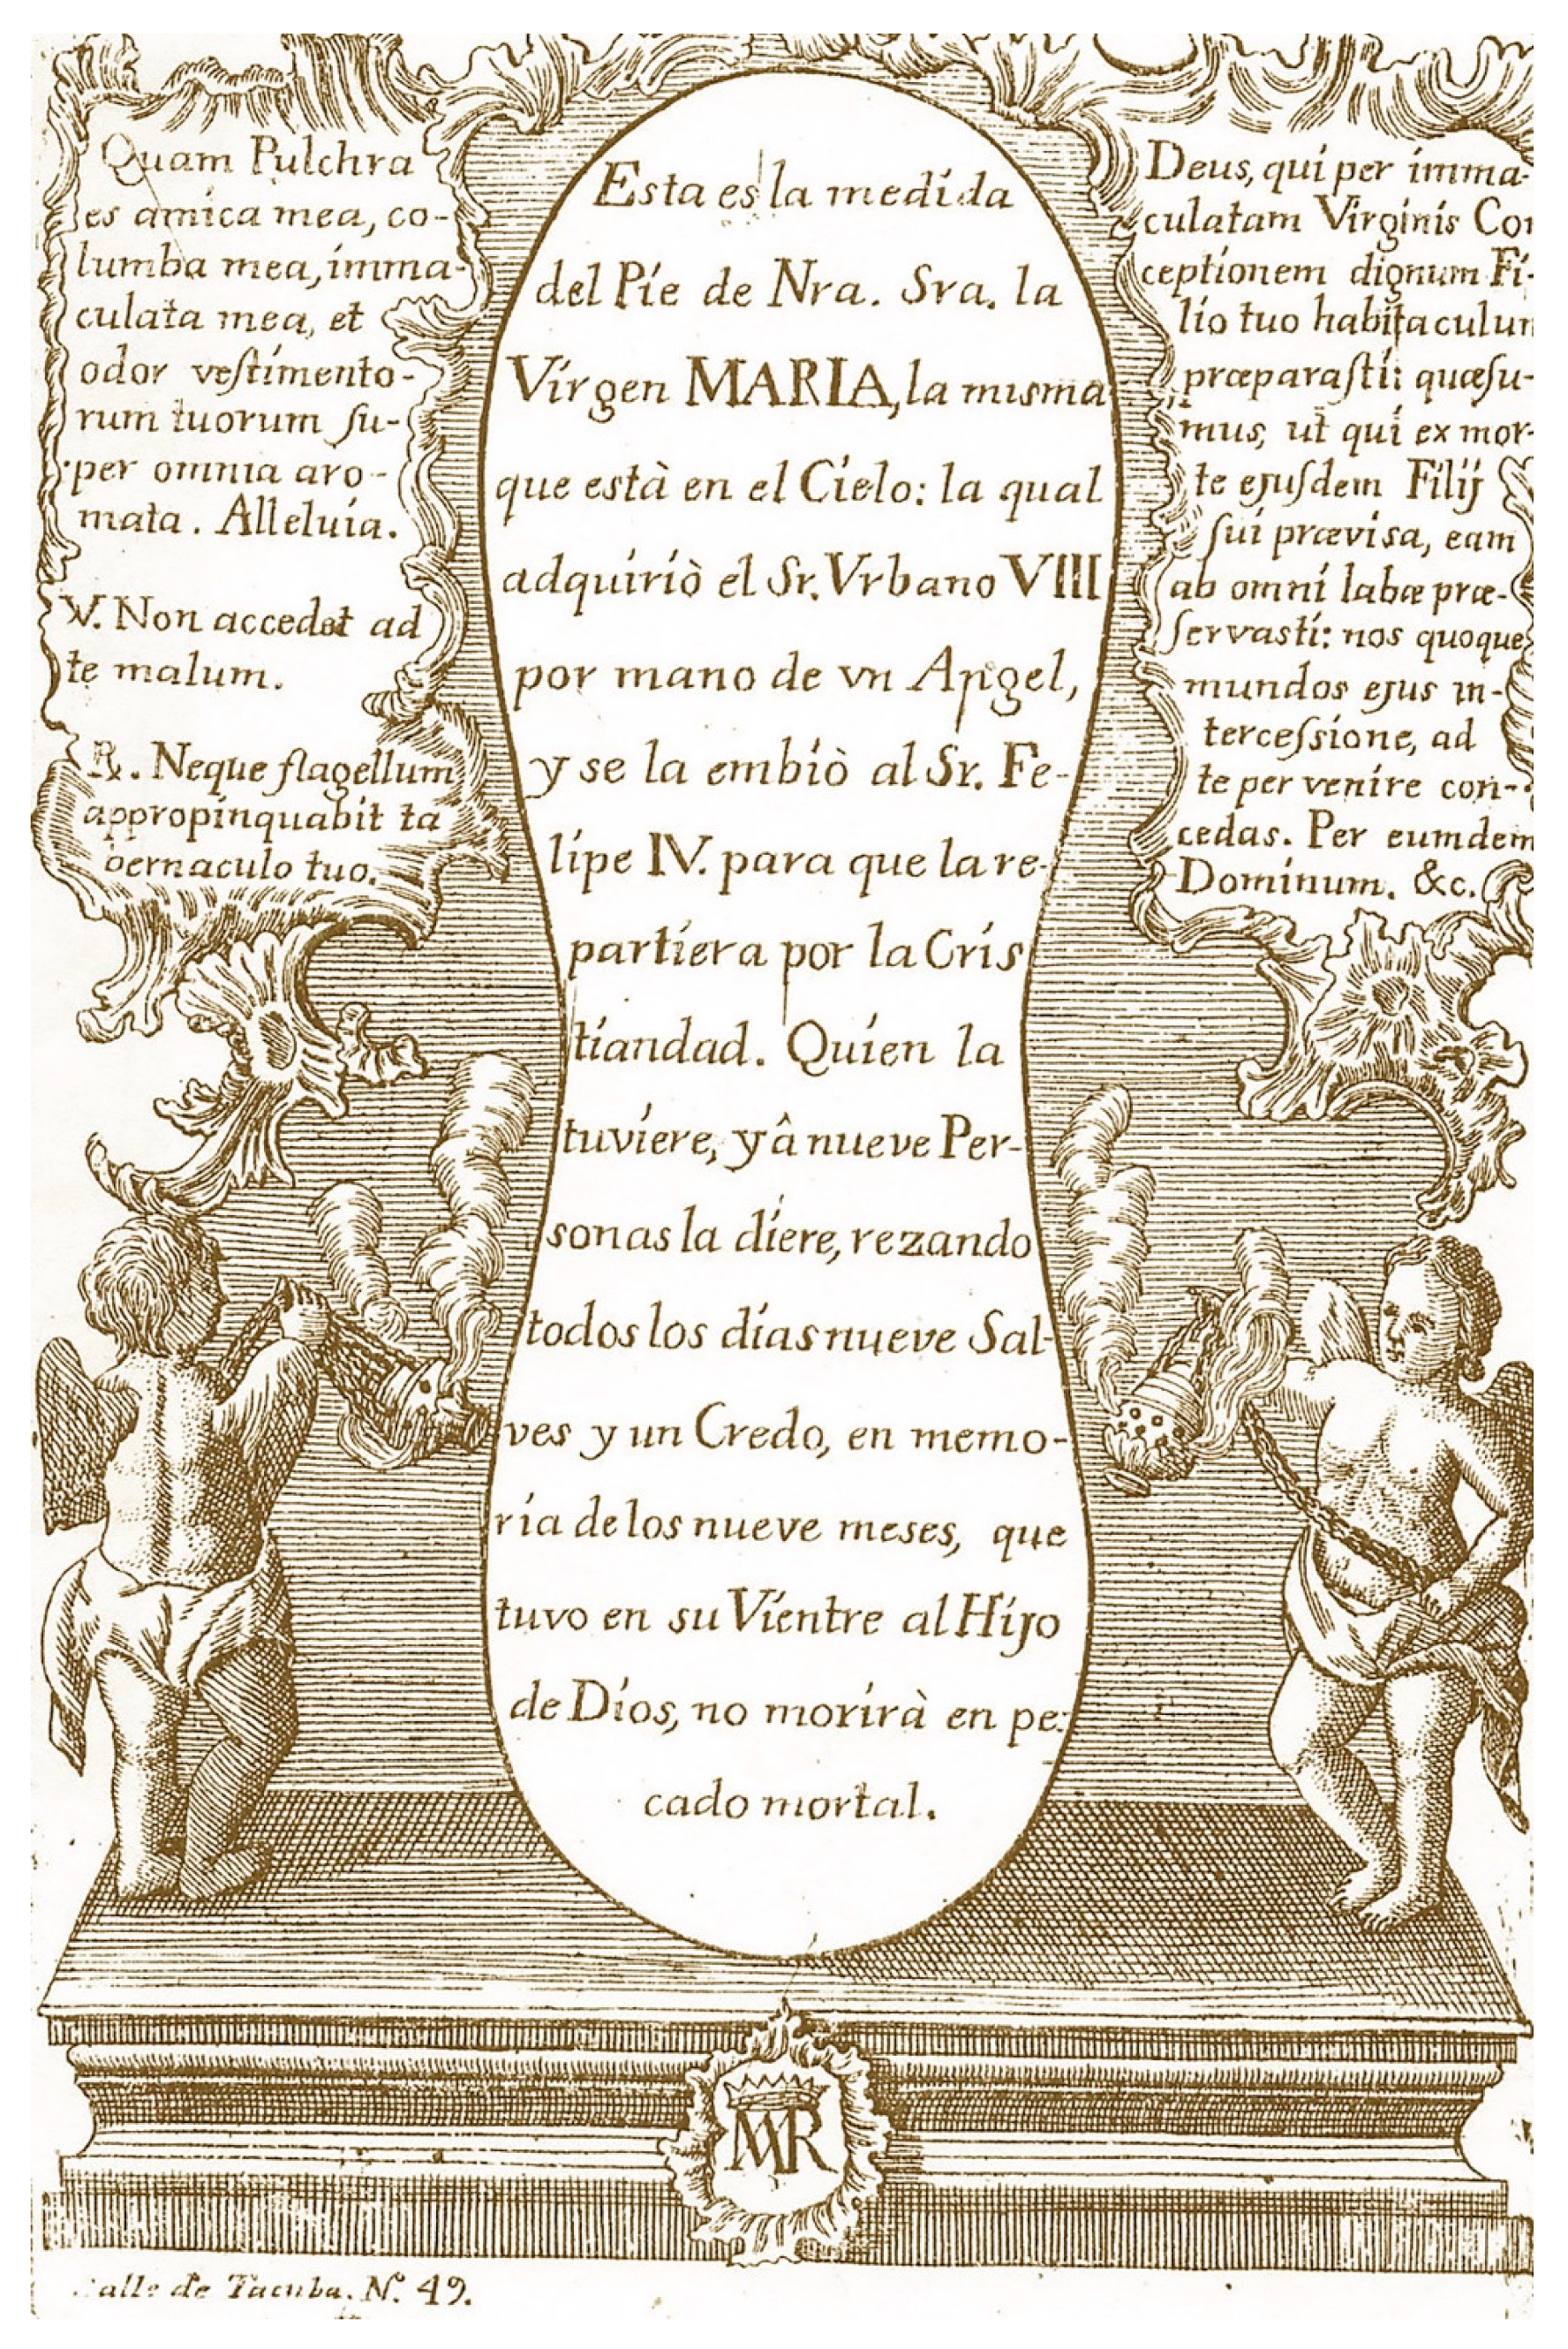 Quam Pulchra
es amica mea, co-
lumba mea, imma-
culata mea, et
odor veſtimento-
rum tuorum ſu-
per omnia aro-
mata. Alleluia.
V. Non accedet ad
te malum.
℟. Neque flagellum
appropinquabit ta
bernaculo tuo.
Esta es la medida
del Pie de Nra. Sra. la
Virgen MARIA, la misma
que està en el Cielo: la qual
adquiriò el Sr. Vrbano VIII
por mano de vn Angel,
y se la embiò al Sr. Fe-
lipe IV. para que la re-
partiera por la Cris
tiandad. Quien la
tuviere, y â nueve Per-
sonas la diere, rezando
todos los dias nueve Sal-
ves y un Credo, en memo-
ria de los nueve meses, que
tuvo en su Vientre al Hijo
de Dios, no morirà en pe-
cado mortal.
Deus, qui per imma-
culatam Virginis Con
ceptionem dignum Fi-
lio tuo habitaculum
præparaſti: quæſu-
mus, ut qui ex mor-
te ejuſdem Filij
ſui prævisa, eam
ab omni labæ præ-
ſervasti: nos quoque
mundos ejus in-
terceſsione, ad
te per venire con-
cedas. Per eumdem
Dominum. &c.
MR
Calle de Tacuba. N.º 49.